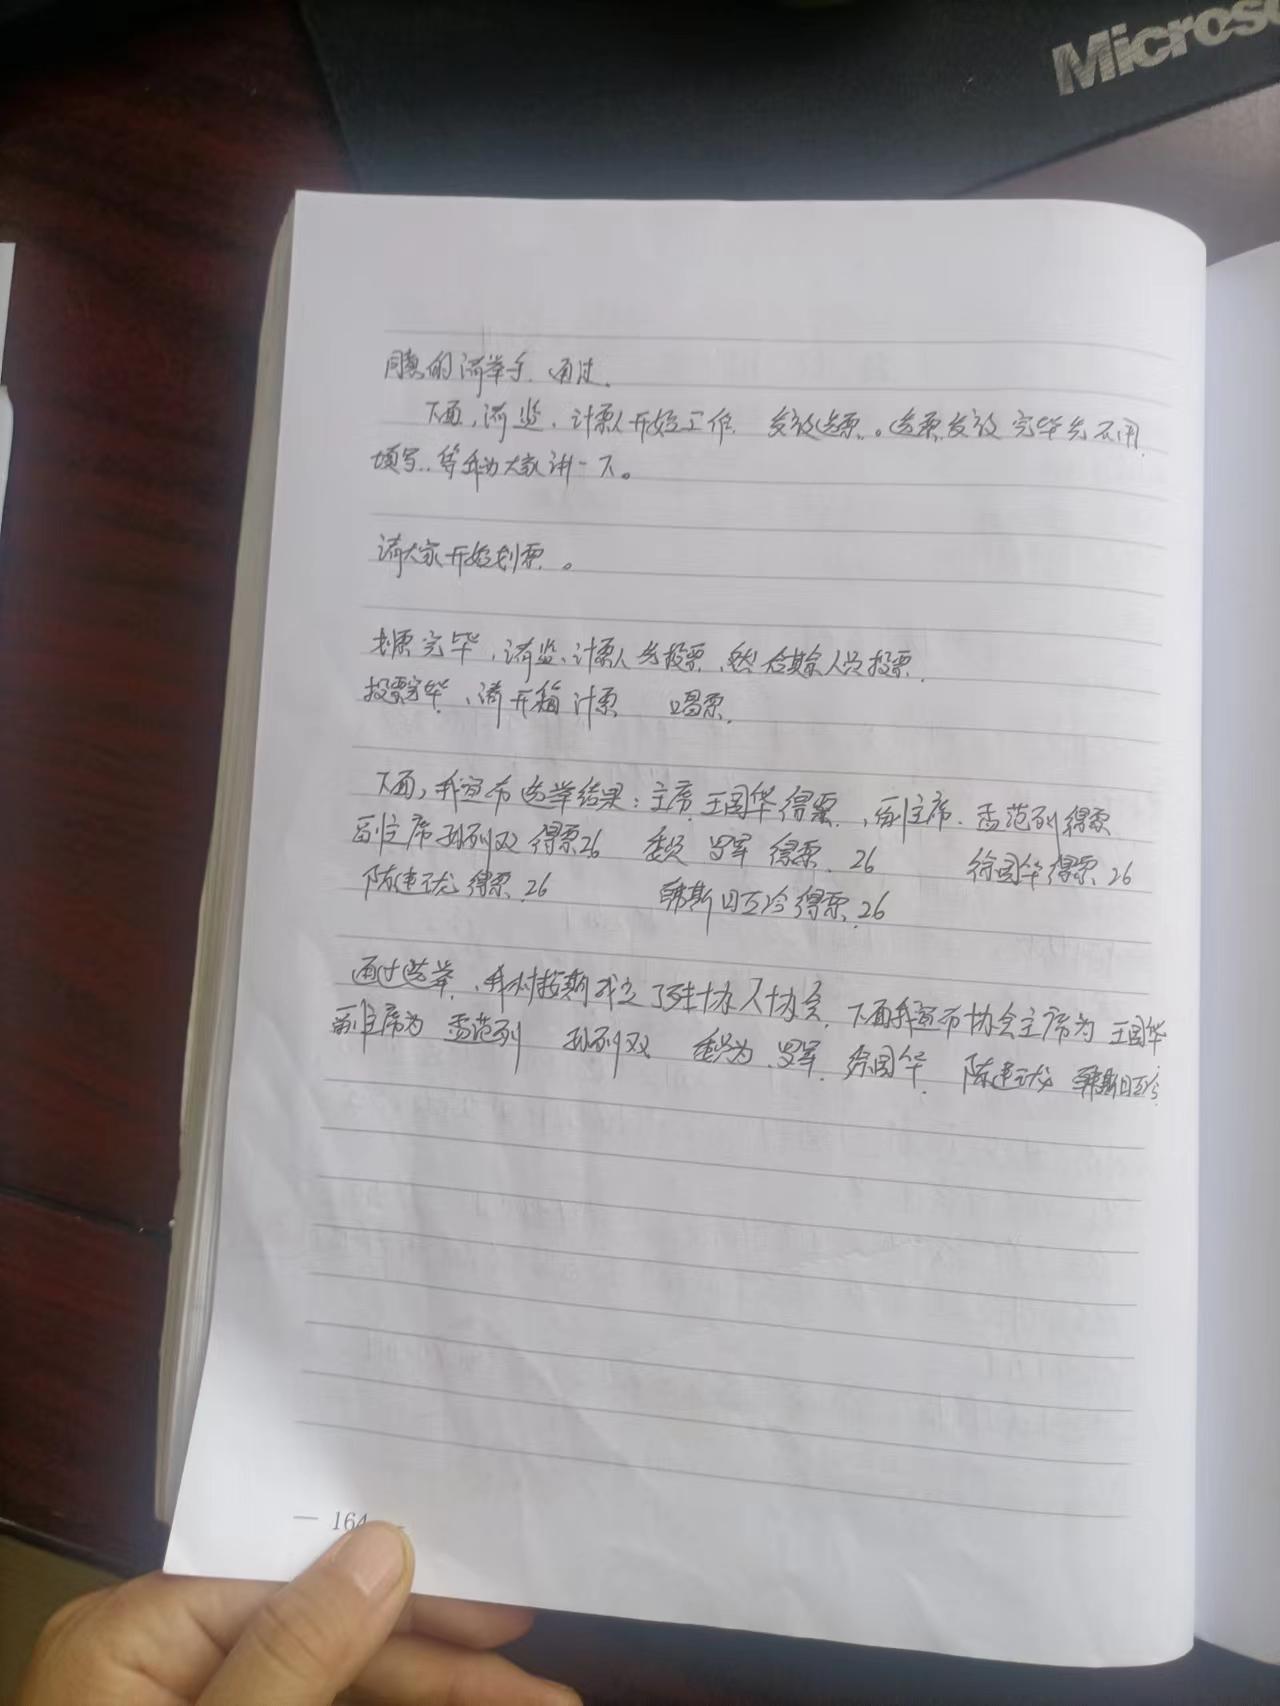 Micros
同意的请举手. 通过.
下面,请监、计票人开始工作. 发放选票。选票发放完毕先不用
填写..等我为大家讲一下。
请大家开始划票。
划票完毕,请监、计票人先投票、然后其余人员投票.
投票完毕、请开箱计票 唱票.
下面,我宣布选举结果:主席.王国华得票.,副主席.孟范列得票
副主席孙列双得票26 委员 罗军 得票.26 徐国华得票.26
陈建龙得票.26 韩斯日古冷得票.26
通过选举、我村按期成立了残协人协会.下面我宣布协会主席为 王国华
副主席为 孟范列 孙列双 委员为.罗军. 徐国华. 陈建龙 韩斯日古冷.
— 164